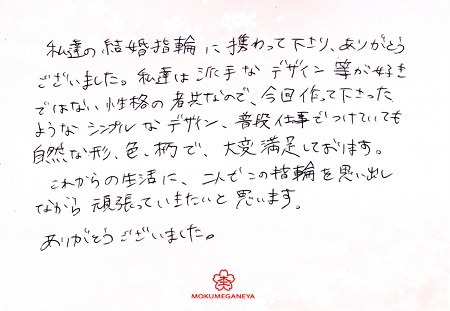 私達の結婚指輪に携わって下さり、ありがとう
ございました。私達は派手なデザイン等が好き
ではない性格の者共なので、今回作って下さった
ようなシンプルなデザイン、普段仕事でつけていても
自然な形、色、柄で、大変満足しております。
これからの生活に、二人でこの指輪を思い出し
ながら頑張っていきたいと思います。
ありがとうございました。
MOKUMEGANEYA